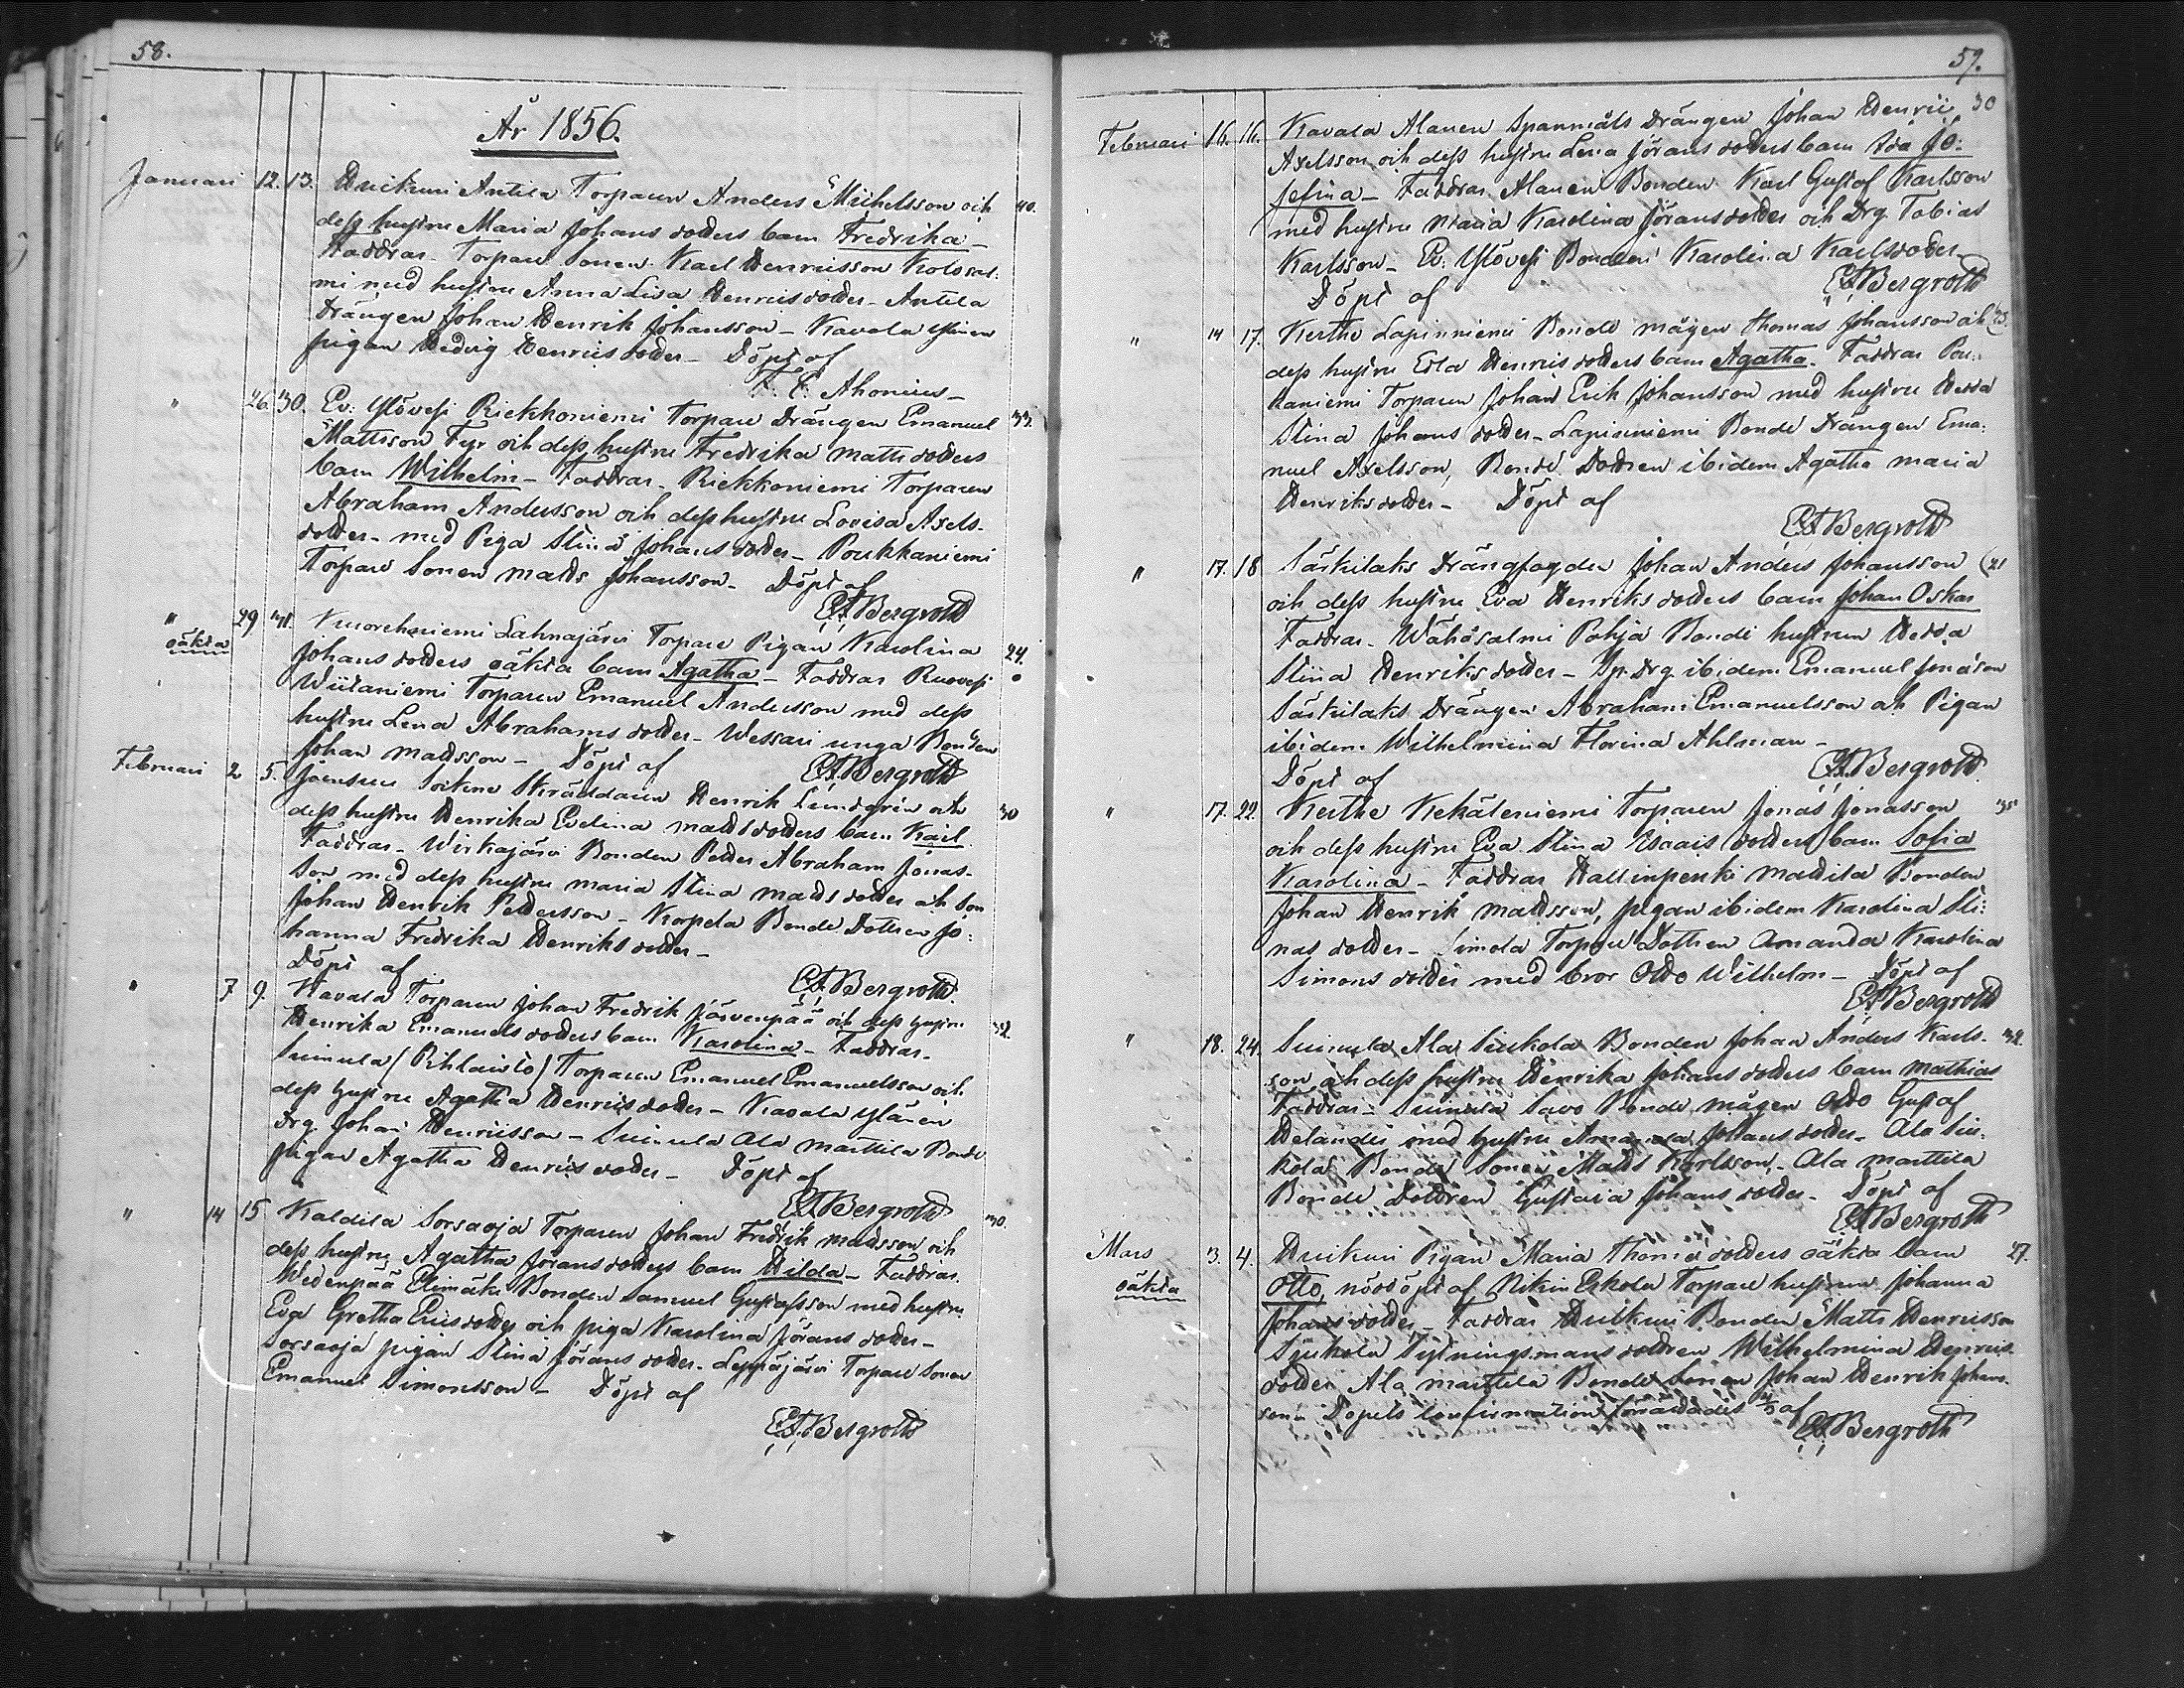 58.
År 1856.
Januari 12. 13. Huikuri Antila Torparen Anders Michelsson och 40.
dess hustru Maria Johansdotters barn Fredrika _
Faddrar. Torpare Sonen Karl Henriksson
med hustru Anna Lisa Henriksdotter - Antila
Drängen Johan Henrik Johansson - Kavala
pigan Hedvig Henriksdotter - Döpt af
F. E. Ahonius -
" 26. 30. Ev: Ylövesi Riekkoniemi Torpare Drängen Emanuel 33.
Mattsson Fyr och dess hustru Fredrika Mattsdotters
barn Wilhelm - Faddrar - Riekkoniemi Torparen
Abraham Andersson och dess hustru Lovisa Axels-
dotter - med Piga Stina Johansdotter - Poukkaniemi
Torpare Sonen Matts Johansson - Döpt af
Bergroth
" 29 31. Lahnajärvi Torpare Pigan Karolina 24.
oäkta Johansdotters oäkta barn Agatha - Faddrar Ruovesi
Torparen Emanuel Andersson med dess
hustru Lena Abrahamsdotter - Wessari unga Bonden
Johan Mattsson - Döpt af Bergroth
Februari 2 5. Skräddaren Henrik Lindgren och
dess hustru Henrika Evelina Mattsdotters barn Karl 30
Faddrar - Wirkajärvi Bonden Petter Abraham Jonas-
son med dess hustru Maria Stina Mattsdotter och Son
Johan Henrik Pettersson - Korpela Bonde Dottren Jo:
hanna Fredrika Henriksdotter -
Döpt af Bergroth
" 7 9. Kavala Torparen Johan Fredrik Järvenpää och dess hustru
Henrika Emanuelsdotters barn Karolina - Faddrar - 32.
Suinula (Pihlaistö) Torparen Emanuel Emanuelsson och
dess hustru Agatha Henriksdotter - Kavala
Drg. Johan Henriksson - Suinula Ala Marttila Bonde
pigan Agatha Henriksdotter - Döpt af
Bergroth
" 14 15 Kaldila Sorsaoja Torparen Johan Fredrik Mattsson och 30.
dess hustru Agatha Jöransdotters barn Hilda - Faddrar.
Wedenpää Elimäki Bonden Samuel Gustafsson med hustru
Eva Gretha Ericsdotter och piga Karolina Jöransdotter -
Sorsaoja pigan Stina Jöransdotter - Leppäjärvi Torpare Sonen
Emanuel Simonsson - Döpt af
Bergroth
59.
Februari 16. 16. Kavala Alanen Spanmåls Drängen Johan Henric 30
Axelsson och dess hustru Lena Jöransdotters barn Ida Jo:
sefina - Faddrar Alanen Bonden Karl Gustaf Karlsson
med hustru Maria Karolina Jöransdotter och Drg. Tobias
Karlsson - Ev: Ylövesi Bonden Karolina Karlsdotter
Döpt af Bergroth
" 14 17. Kerthe Lapinniemi Bonde mågen Thomas Johansson och
dess hustru Edla Henriksdotters barn Agatha. Faddrar Pou:
kaniemi Torparen Johan Erik Johansson med hustru Hedda
Stina Johansdotter - Lapinniemi Bonde Drängen Ema:
nuel Axelsson, Bonde Dottren ibidem Agatha Maria
Henriksdotter - Döpt af
Bergroth
" 17. 18 Säkilaks Drängfogden Johan Anders Johansson
och dess hustru Eva Henriksdotters barn Johan Oskar
Faddrar. Wähäsalmi Pohja Bonde hustrun Hedda
Stina Henriksdotter - Sp. Drg. ibidem Emanuel Jonasson
Drängen Abraham Emanuelsson och Pigan
ibidem Wilhelmina Florina Ahlman -
Döpt af Bergroth
" 17. 22. Kerthe Kekäleniemi Torparen Jonas Jonasson 35
och dess hustru Eva Stina Esaiasdotters barn Sofia
Karolina - Faddrar Hallinpenki Mattila Bonden
Johan Henrik Mattsson, pigan ibidem Karolina
dotter - Simola Torpare Dottren Amanda Karolina
Simonsdotter med bror Otto Wilhelm - Döpt af
Bergroth
" 18. 24. Suinula Ala Siukola Bonden Johan Anders Karls- 32
son och dess hustru Henrika Johansdotters barn Mathias
Faddrar - Suinula Savo Bonde mågen Otto Gustaf
Helander med hustru Amanda Johansdotter - Ala Siu-
kola Bonde Sonen Matts Karlsson - Ala Marttila
Bonde Dottren Gustava Johansdotter - Döpt af
Bergroth
Mars 3. 4. Huikuri Pigan Maria Thomasdotters oäkta barn 27.
oäkta Otto, nöddöpt af Eskola Torpare hustrun Johanna
Johansdotter - Faddrar Huikuri Bonden Matts Henriksson
Siukola Dottren Wilhelmina Henriks-
dotter Ala Marttila Bonde Sonen Johan Henrik Johans-
son - Dopets confirmation förrättades af
Bergroth